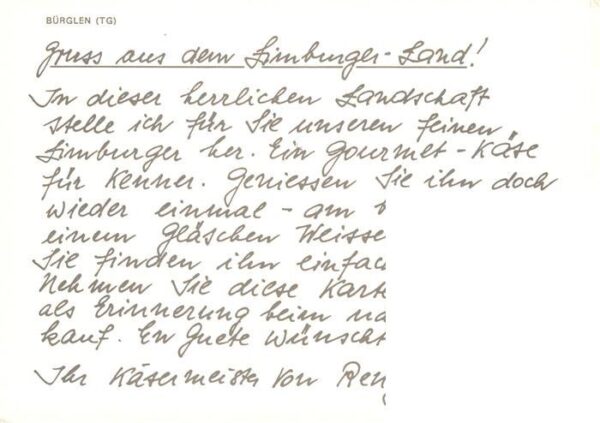 BÜRGLEN (TG)
Gruss aus dem Limburger-Land!
In dieser herrlichen Landschaft
stelle ich für Sie unseren feinen
Limburger her. Ein Gourmet-Käse
für Kenner. Geniessen Sie ihn doch
wieder einmal - am
einem Gläschen Weisse
Sie finden ihn einfac
Nehmen Sie diese Karte
als Erinnerung beim
kauf. En Guete wünscht
Ihr Käsermeister von Ren